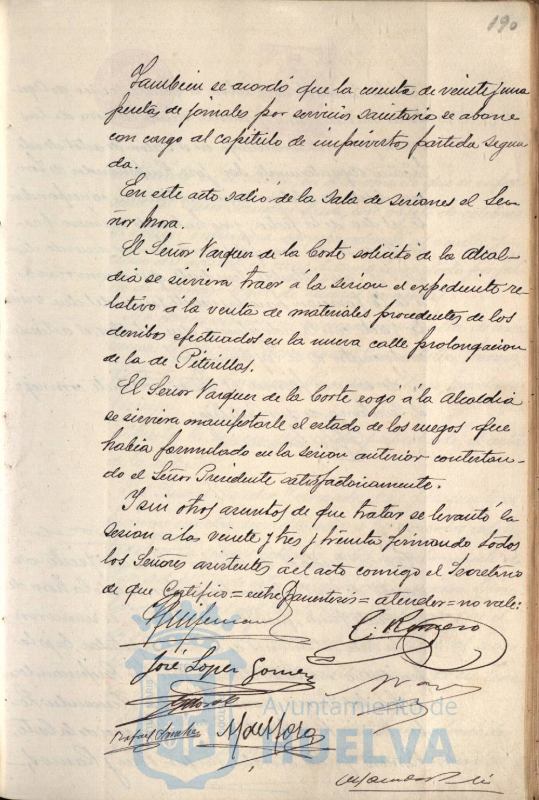 190
Tambien se acordó que la cuenta de veintiuna
pesetas de jornales por servicio sanitario se abone
con cargo al capitulo de imprevistos partida segun
da.
En este acto salió de la Sala de sesiones el Se-
ñor Mora.
El Señor Vazquez de la Corte solicitó de la Alcal-
dia se sirviera traer á la sesion el expediente re-
lativo á la venta de materiales procedentes de los
derribos efectuados en la nueva calle prolongacion
de la de Piterillas.
El Señor Vazquez de la Corte rogó á la Alcaldia
se sirviera manifestarle el estado de los ruegos que
habia formulado en la sesion anterior contestan-
do el Señor Presidente satisfactoriamente.
Y sin otros asuntos de que tratar se levantó la
sesion á las veinte y tres y treinta firmando todos
los Señores asistentes al acto conmigo el Secretario
de que Certifico = entre parentesis = atender = no vale:
C. Romero
José Lopez Gomez
Ayuntamiento de
HUELVA